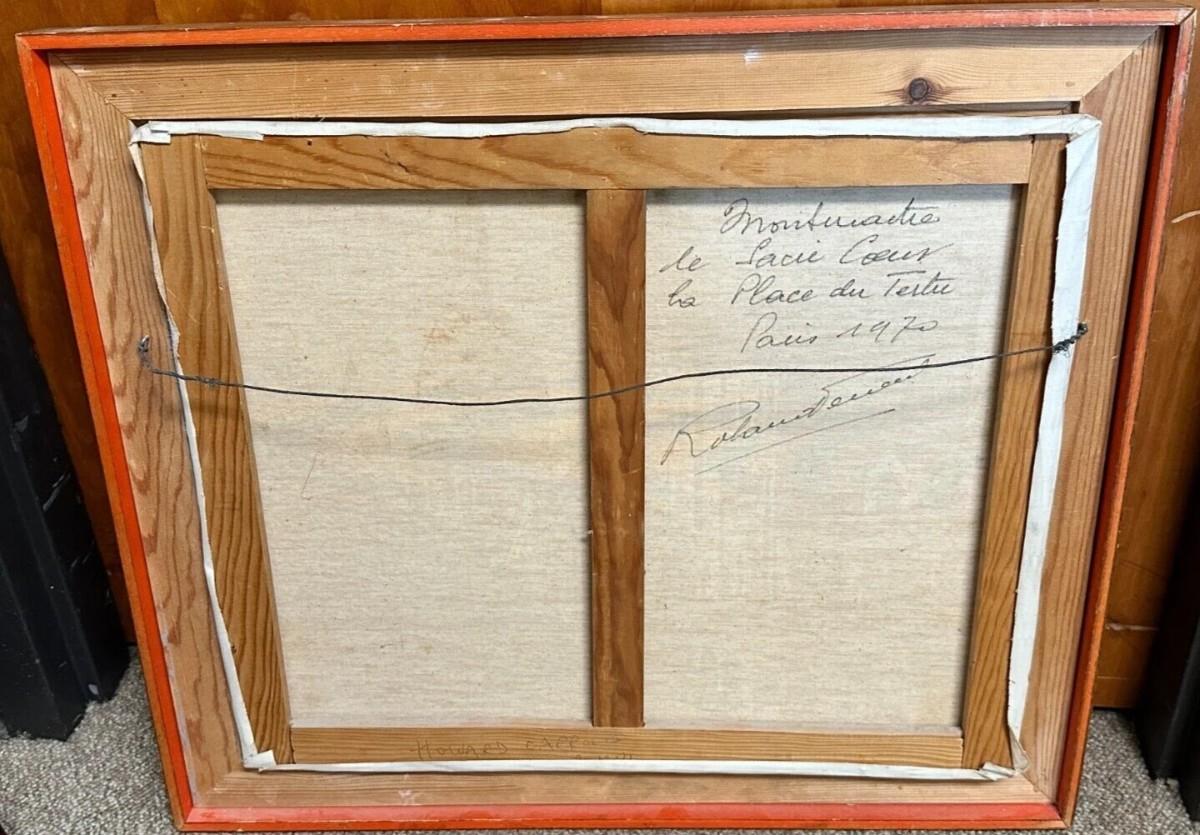 Montmartre
le Sacré Cœur
la Place du Tertre
Paris 1970
HOWARD